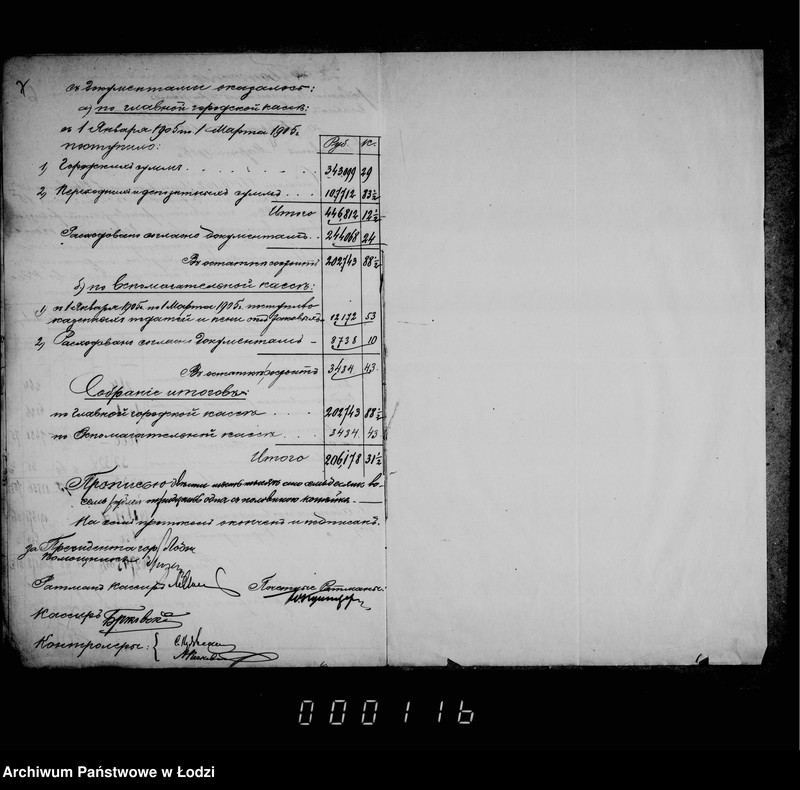 съ документами оказалось:
а) по главной городской кассѣ:
съ 1 Января 1905 по 1 Марта 1905 г.
поступило:
Руб. К.
1) Городскихъ суммъ . . . . . 343099 29
2) Переходныхъ и депозитныхъ суммъ . . . 107712 83½
Итого 446,812 12½
Расходовано согласно документамъ . . 244068 24
Въ остаткѣ состоитъ 202743 88½
б) по Вспомогательной кассѣ:
1) съ 1 Января 1905 г. по 1 Марта 1905 г. поступило
казенныхъ податей и пени отъ 12172 53
2) Расходовано согласно документамъ – 8738 10
Въ остаткѣ состоитъ 3434 43
Собраніе итоговъ:
по Главной городской кассѣ . . . . 202743 88½
по Вспомогательной кассѣ . . . 3434 43
Итого 206,178 31½
Прописью двѣсти шесть тысячъ сто семьдесятъ во-
семь рублей тридцать одна съ половиною копѣйка. —
На семъ протоколъ оконченъ и подписанъ.
за Президента гор. Лодзи
Ратманъ кассиръ
Почетные Ратманы:
Кассиръ
Контролеры:
0000116
Archiwum Państwowe w Łodzi